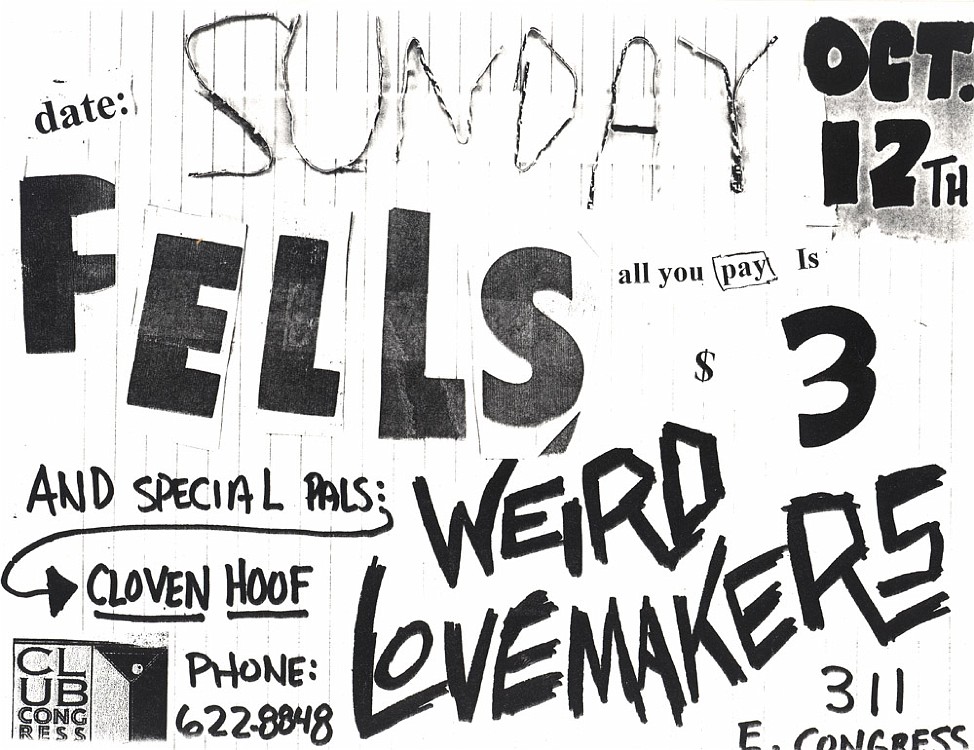 date: SUNDAY OCT.
12TH
FELLS
all you pay Is
$ 3
AND SPECIAL PALS:
CLOVEN HOOF
WEIRD
LOVEMAKERS
CLUB
CONGRESS
PHONE:
622-8848
311
E. CONGRESS